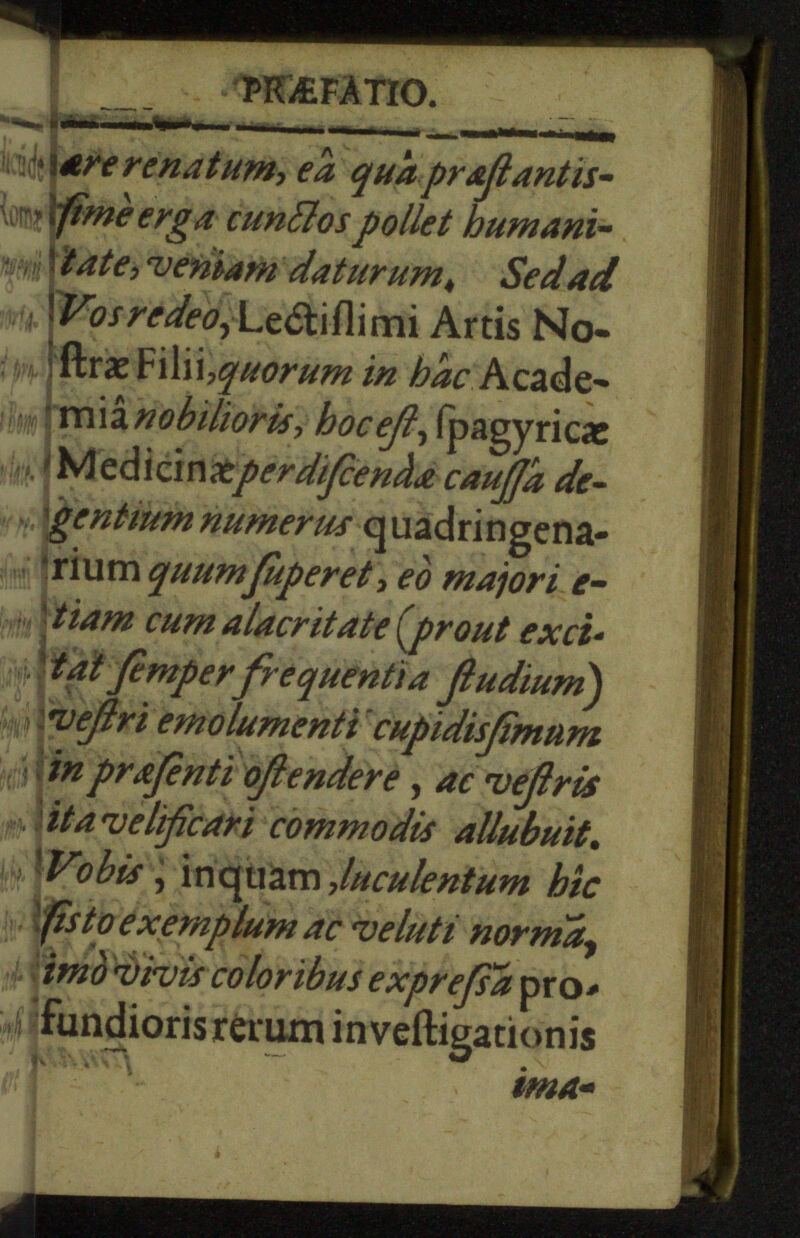 PRÆFATIO.
are renatum, eâ quâ præſtantis-
ſimè erga cunctos pollet humani-
tate, veniam daturum. Sed ad
Vos redeo, Lectiſſimi Artis No-
ſtræ Filii, quorum in hâc Acade-
miâ nobilioris, hoc eſt, ſpagyricæ
Medicinæ perdiſcendæ cauſſâ de-
gentium numerus quadringena-
rium quum ſuperet, eò majori e-
tiam cum alacritate (prout exci-
tat ſemper frequentia ſtudium)
veſtri emolumenti cupidisſimum
in præſenti oſtendere, ac veſtris
ita velificari commodis allubuit.
Vobis, inquam, luculentum hîc
ſisto exemplum ac veluti normã,
imò vivis coloribus expreſsã pro-
fundioris rerum inveſtigationis
ima-